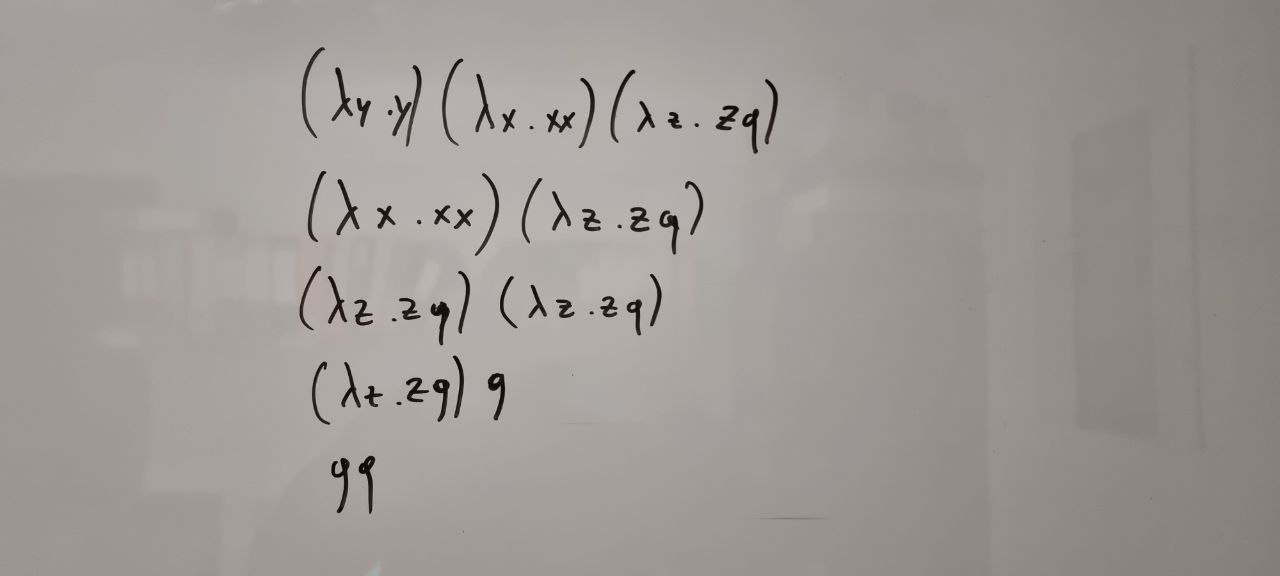 (λy.y)(λx.xx)(λz.zq)
(λx.xx)(λz.zq)
(λz.zq)(λz.zq)
(λz.zq)q
qq